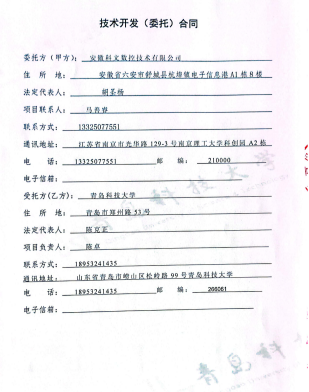 技术开发（委托）合同
委托方（甲方）： 安徽科文数控技术有限公司
住 所 地： 安徽省六安市舒城县杭埠镇电子信息港A1栋8楼
法定代表人： 胡圣杨
项目联系人： 马善春
联系方式： 13325077551
通讯地址： 江苏省南京市光华路129-3号南京理工大学科创园A2栋
电 话： 13325077551 邮 编： 210000
电子信箱：
受托方(乙方)： 青岛科技大学
住 所 地： 青岛市郑州路53号
法定代表人： 陈克正
项目负责人： 陈卓
联系方式： 18953241435
通讯地址： 山东省青岛市崂山区松岭路99号青岛科技大学
电 话： 18953241435 邮 编： 266061
电子信箱：
青岛科技大学
青岛科